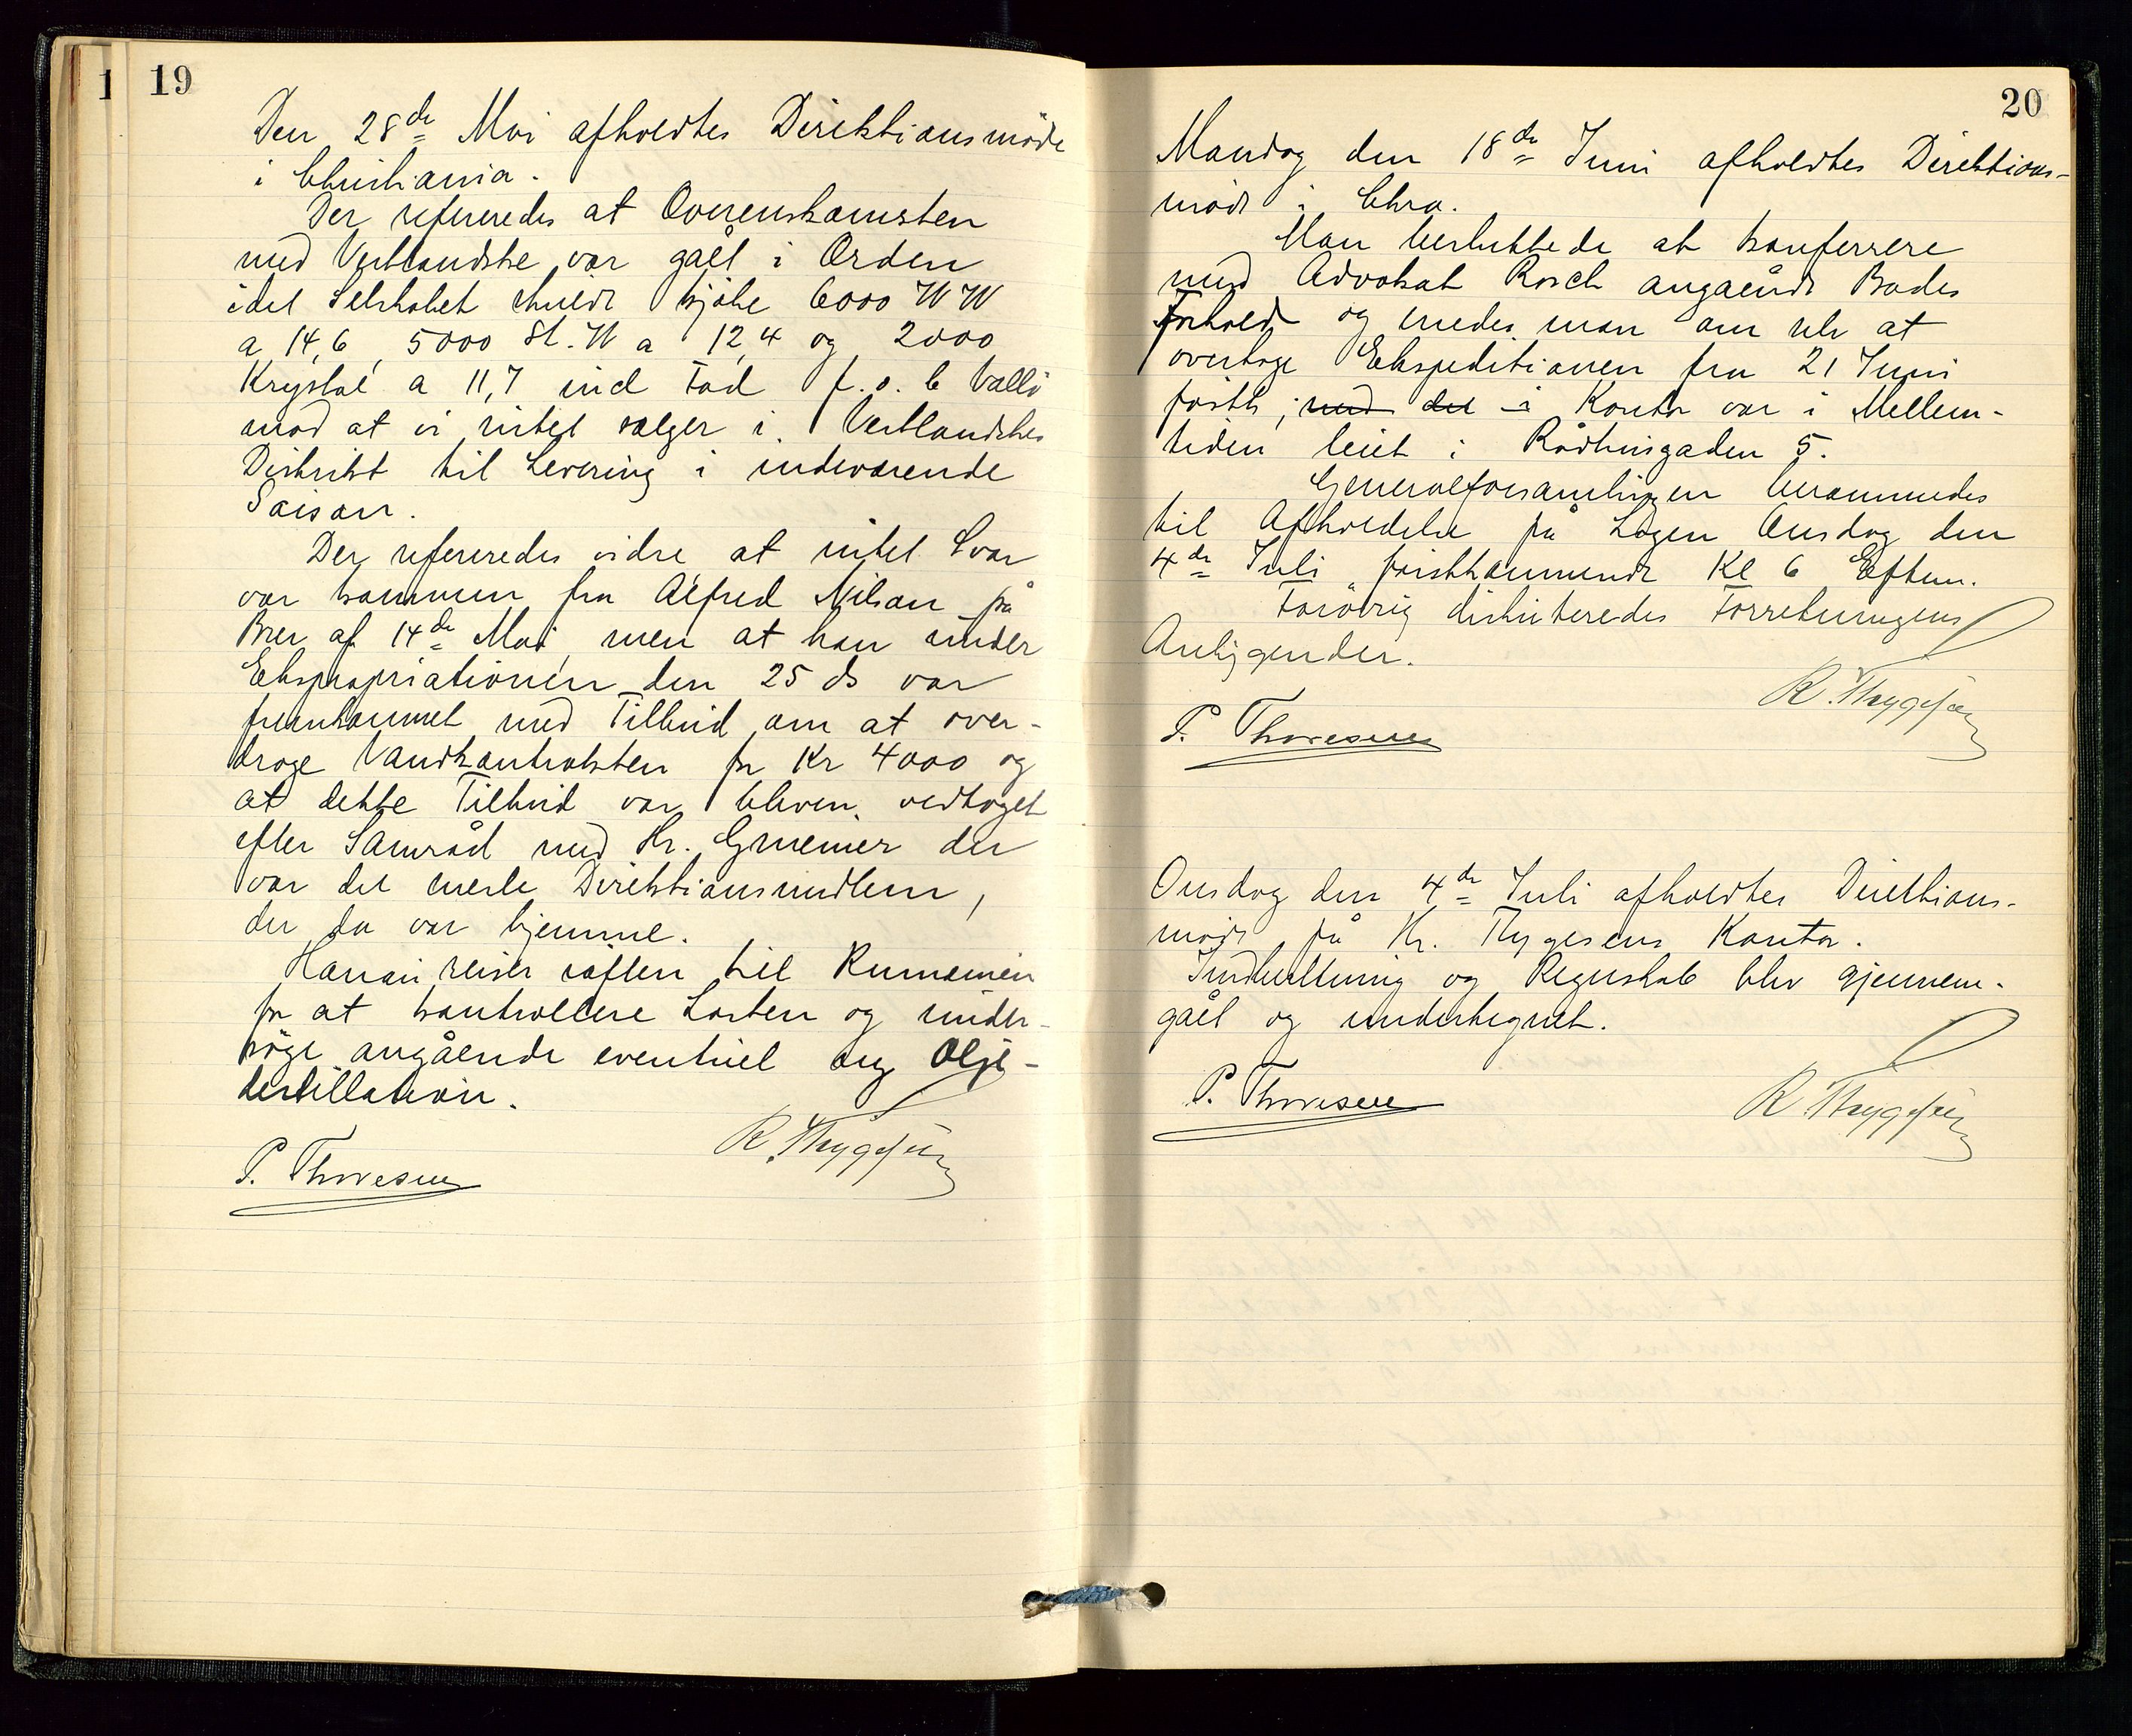 19
Den 28de Mai afholdtes Direktionsmöde
i Christiania.
Der refereredes at Overenskomsten
med Vestlandske var gået i Orden
idet Selskabet skulde kjöbe 6000 WW
a 14,6, 5000 St. W a 12,4 og 2000
Krystal a 11,7 incl Fad f. o. b Vallö
mod at vi intet sælger i Vestlandskes
Distrikt til Levering i indeværende
Saison.
Der refereredes vidre at intet Svar
var kommen fra Alfred Nilson på
Brev af 14de Mai, men at han under
Ekspropriationen den 25 ds var
fremkommet med Tilbud om at over-
drage Vandkontrakten for Kr 4000 og
at dette Tilbud var bleven vedtaget
efter Samråd med Hr. Gruener der
var det eneste Direktionsmedlem,
der da var hjemme.
reiser iaften til Rumænien
for at kontrollere Lasten og under-
söge angående eventuel ny Olje-
destillation.
R. Thygesen
P. Thoresen
20
Mandag den 18de Juni afholdtes Direktions-
möde i Chra.
Man besluttede at konferrere
med Advokat Rosch angående Bades
Forhold og enedes man om selv at
overtage Ekspeditionen fra 21 Juni
förstk; med det i Kontor var i Mellem-
tiden leiet i Rådhusgaden 5.
Generalforsamlingen berammedes
til Afholdelse på Logen Onsdag den
4de Juli förstkommende Kl 6 Efterm.
Forövrig diskuteredes Forretningens
Anliggender.
R. Thygesen
P. Thoresen
Onsdag den 4de Juli afholdtes Direktions-
möde på Hr. Thygesens Kontor.
Indberetning og Regnskab blev gjennem-
gået og undertegnet.
P. Thoresen
R. Thygesen